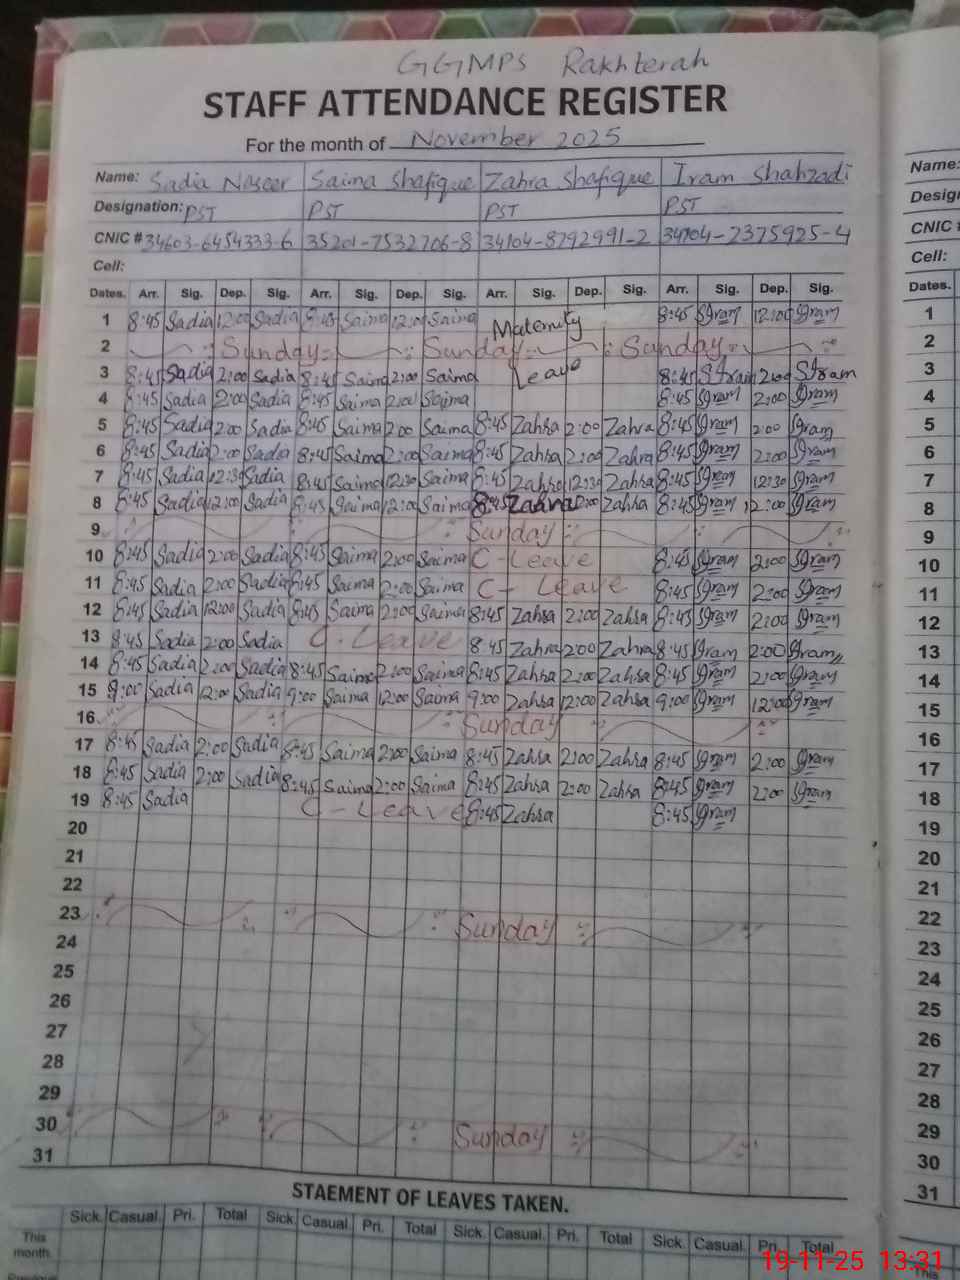 GGMPS Rakhterah
STAFF ATTENDANCE REGISTER
For the month of November 2025
Name: Sadia Naseer Saima Shafique Zahra Shafique Iram Shahzadi
Designation: PST PST PST PST
CNIC # 34603-6454333-6 35201-7532706-8 34104-8792991-2 34104-2375925-4
Cell:
Dates. Arr. Sig. Dep. Sig. Arr. Sig. Dep. Sig. Arr. Sig. Dep. Sig. Arr. Sig. Dep. Sig.
1 8:45 Sadia 12:00 Sadia 8:45 Saima 12:00 Saima Maternity 8:45 Iram 12:00 Iram
2 Sunday Sunday Sunday
3 8:45 Sadia 2:00 Sadia 8:45 Saima 2:00 Saima Leave 8:45 Iram 2:00 Iram
4 8:45 Sadia 2:00 Sadia 8:45 Saima 2:00 Saima 8:45 Iram 2:00 Iram
5 8:45 Sadia 2:00 Sadia 8:45 Saima 2:00 Saima 8:45 Zahra 2:00 Zahra 8:45 Iram 2:00 Iram
6 8:45 Sadia 2:00 Sadia 8:45 Saima 2:00 Saima 8:45 Zahra 2:00 Zahra 8:45 Iram 2:00 Iram
7 8:45 Sadia 12:30 Sadia 8:45 Saima 12:30 Saima 8:45 Zahra 12:30 Zahra 8:45 Iram 12:30 Iram
8 8:45 Sadia 12:00 Sadia 8:45 Saima 12:00 Saima 8:45 Zahra 12:00 Zahra 8:45 Iram 12:00 Iram
9 Sunday
10 8:45 Sadia 2:00 Sadia 8:45 Saima 2:00 Saima C-Leave 8:45 Iram 2:00 Iram
11 8:45 Sadia 2:00 Sadia 8:45 Saima 2:00 Saima C-Leave 8:45 Iram 2:00 Iram
12 8:45 Sadia 12:00 Sadia 8:45 Saima 2:00 Saima 8:45 Zahra 2:00 Zahra 8:45 Iram 2:00 Iram
13 8:45 Sadia 2:00 Sadia C-Leave 8:45 Zahra 2:00 Zahra 8:45 Iram 2:00 Iram
14 8:45 Sadia 2:00 Sadia 8:45 Saima 2:00 Saima 8:45 Zahra 2:00 Zahra 8:45 Iram 2:00 Iram
15 9:00 Sadia 12:00 Sadia 9:00 Saima 12:00 Saima 9:00 Zahra 12:00 Zahra 9:00 Iram 12:00 Iram
16 Sunday
17 8:45 Sadia 2:00 Sadia 8:45 Saima 2:00 Saima 8:45 Zahra 2:00 Zahra 8:45 Iram 2:00 Iram
18 8:45 Sadia 2:00 Sadia 8:45 Saima 2:00 Saima 8:45 Zahra 2:00 Zahra 8:45 Iram 2:00 Iram
19 8:45 Sadia C-Leave 8:45 Zahra 8:45 Iram
20
21
22
23 Sunday
24
25
26
27
28
29
30 Sunday
31
STAEMENT OF LEAVES TAKEN.
Sick. Casual. Pri. Total Sick. Casual. Pri. Total Sick. Casual. Pri. Total Sick. Casual. Pri. Total
This month.
Name:
CNIC #
Cell:
Dates.
1
2
3
4
5
6
7
8
9
10
11
12
13
14
15
16
17
18
19
20
21
22
23
24
25
26
27
28
29
30
31
19-11-25 13:31